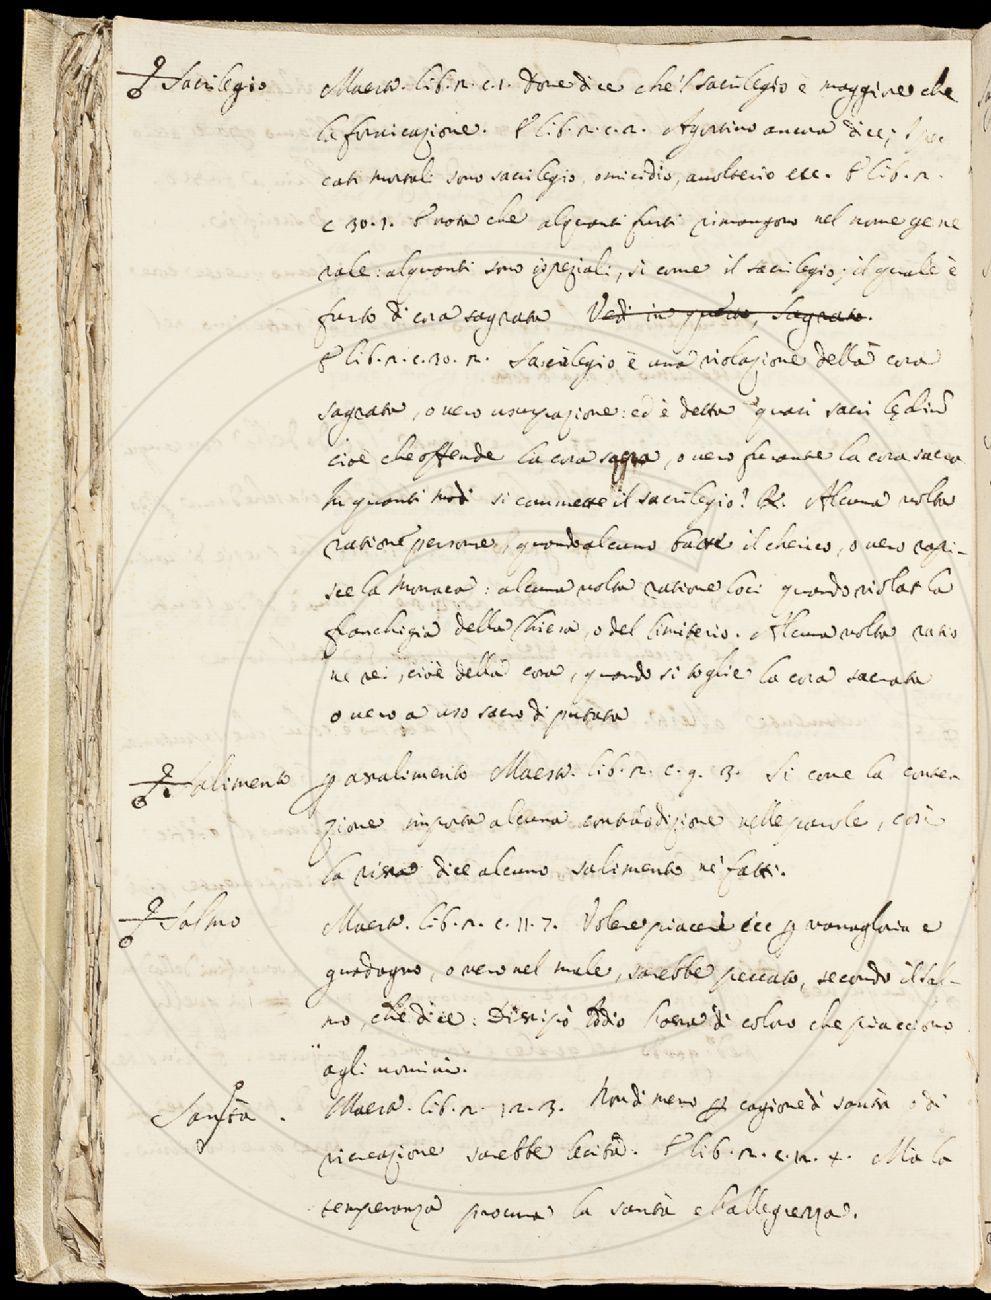 Sacrilegio Maestr. lib. 2. c. 1. Dove dice che 'l sacrilegio è maggiore che
la fornicazione. E lib. 2. c. 2. Agostino ancora dice; I pec-
cati mortali sono sacrilegio, omicidio, avolterio etc. E lib. 2.
c 30. 1. E nota che alquanti furti rimangono nel nome gene
rale: alquanti sono ispeziali, sì come il sacrilegio; il quale è
furto di cosa sagrata Vedi in questo, Sagrato.
E lib. 2. c. 30. 2. Sacrilegio è una violazione della cosa
sagrata, o vero usurpazione: ed è detta quasi sacrilędiũ
cioè che offende la cosa sagra, o vero furante la cosa sacra
In quanti modi si commette il sacrilegio? R. Alcuna volta
ratione persone, quando alcuno batte il cherico, o vero rapi-
sce la Monaca: alcuna volta ratione loci quando violat la
franchigia della Chiesa, o del Cimiterio. Alcuna volta ratio
ne rei, cioè della cosa, quando si toglie la cosa sacrata
o vero a uso sacro diputata
Salimento p asalimento Maestr. lib. 2. c. 9. 3. Si come la conten-
zione importa alcuna contradizione nelle parole, così
la rissa dice alcuno salimento ne' fatti.
Salmo Maestr. lib. 2. c. 11. 7. Volere piacere p vanagloria e
guadagno, o vero nel male, sarebbe peccato, secondo il Sal-
mo, che dice: Dissipò Iddio l'ossa di coloro che piacciono
agli uomini.
Santà. Maestr. lib. 2. 12. 3. Nondimeno p cagione di santà o di
ricreazione sarebbe lecito. E lib. 2. c. 12. 4. Ma la
temperanza procura la santà e l'allegrezza.